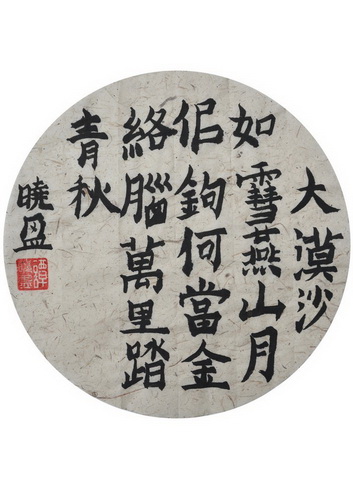 大漠沙
如䨮燕山月
佀鉤何當金
絡腦萬里踏
青秋
曉盈